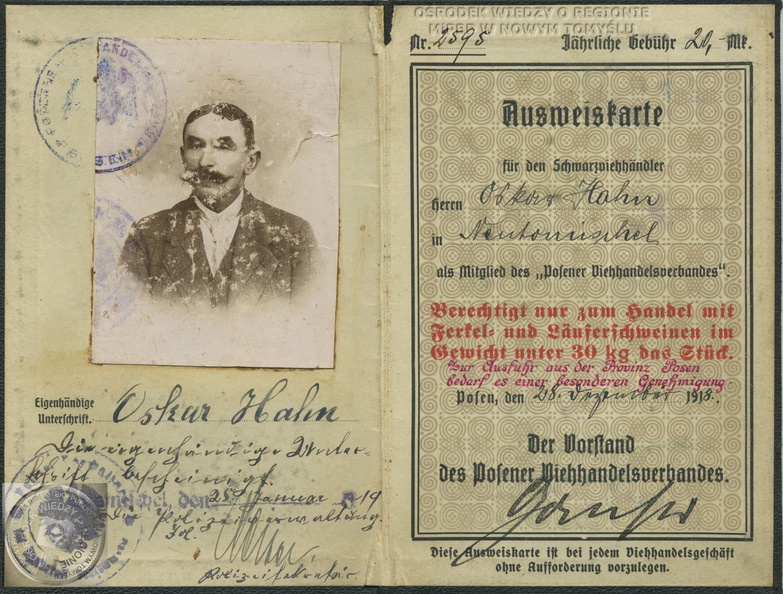 OŚRODEK WIEDZY O REGIONIE
MIPBP W NOWYM TOMYŚLU
Nr. 2595 Jährliche Gebühr 20,- Mk.
Ausweiskarte
für den Schwarzviehhändler
Herrn Oskar Hahn
in Neutomischel
als Mitglied des „Posener Viehhandelsverbandes“.
Berechtigt nur zum Handel mit
Ferkel- und Läuferschweinen im
Gewicht unter 30 kg das Stück.
Zur Ausfuhr aus der Provinz Posen
bedarf es einer besonderen Genehmigung
Posen, den 28. Dezember 1918.
Der Vorstand
des Posener Viehhandelsverbandes.
Diese Ausweiskarte ist bei jedem Viehhandelsgeschäft
ohne Aufforderung vorzulegen.
Eigenhändige
Unterschrift. Oskar Hahn
Die eigenhändige Unter-
schrift bescheinigt.
den 25 Januar 1919
Die Polizeiverwaltung.
Polizeisekretär.